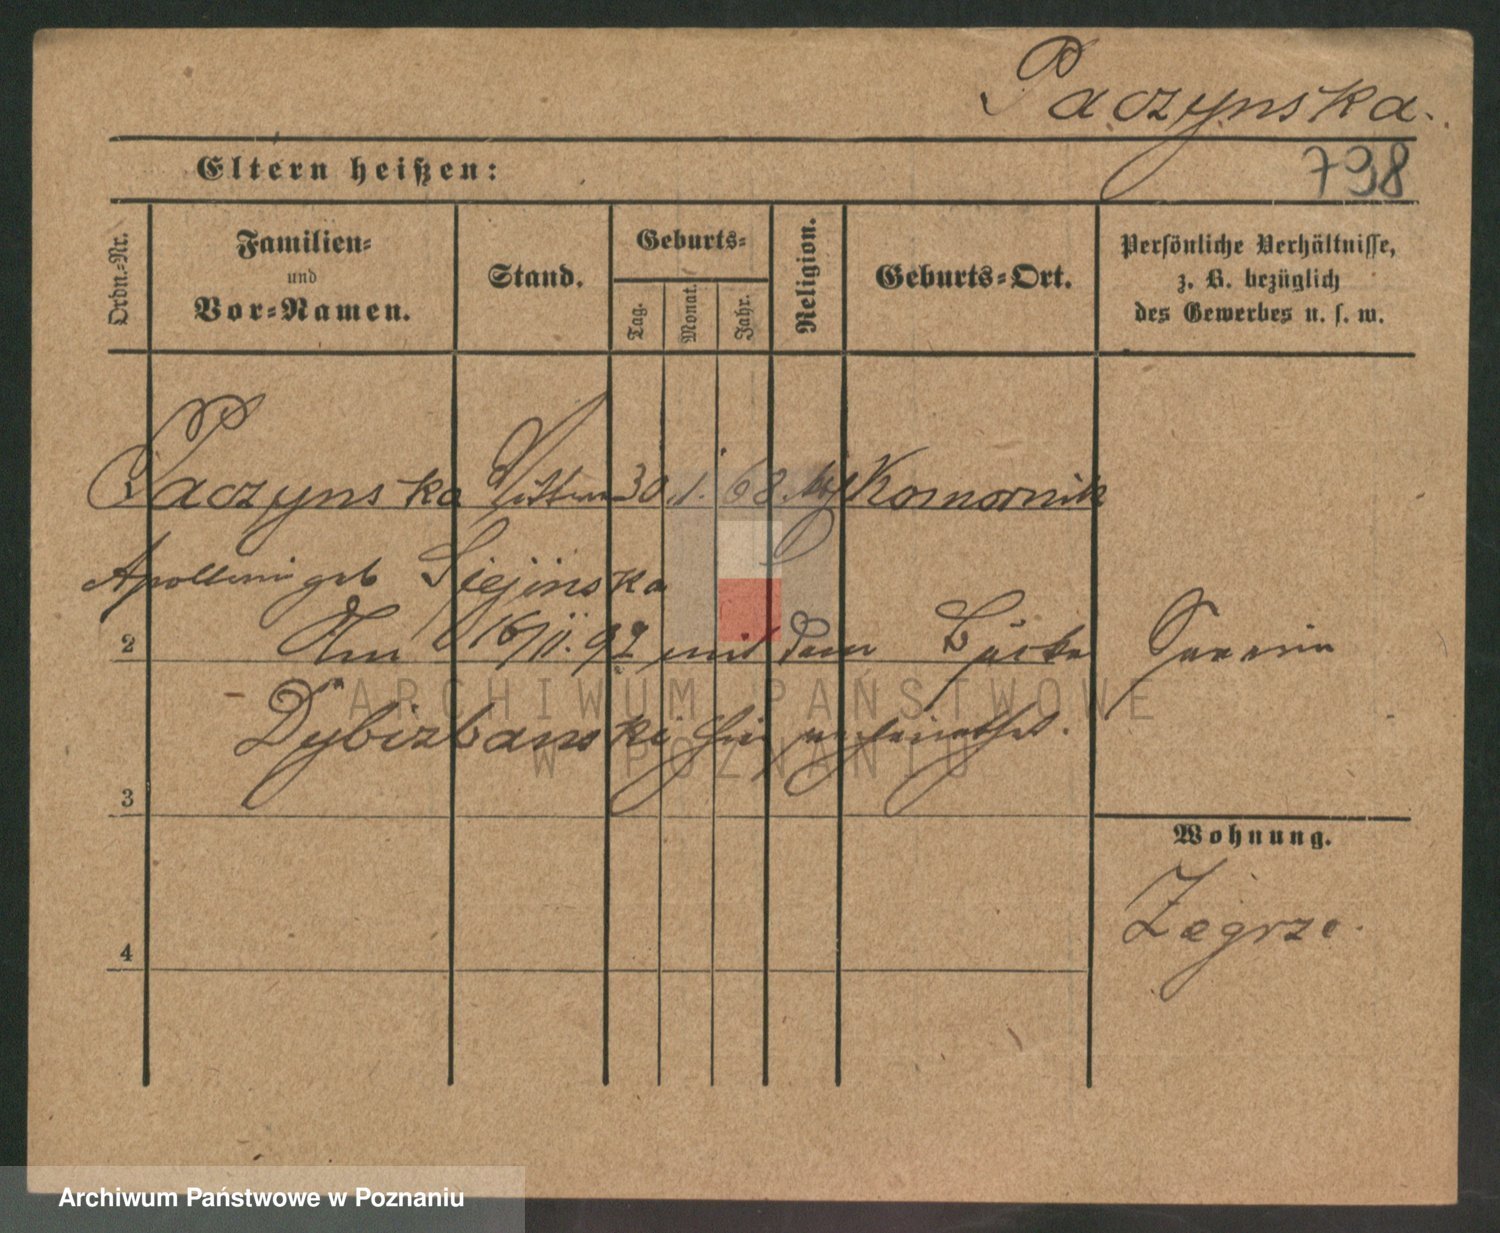 Paczynska.
Eltern heißen:
798
Ordn.-Nr.
Familien-
und
Vor-Namen.
Stand.
Geburts-
Tag.
Monat.
Jahr.
Religion.
Geburts-Ort.
Persönliche Verhältnisse,
z. B. bezüglich
des Gewerbes u. s. w.
Paczynska 30. 1. 68. Komornik
geb
2 Am 16/II. 92 mit dem
Dybizbanski hier verheirathet.
3
Wohnung.
Zegrze.
4
ARCHIWUM PAŃSTWOWE
W POZNANIU
Archiwum Państwowe w Poznaniu